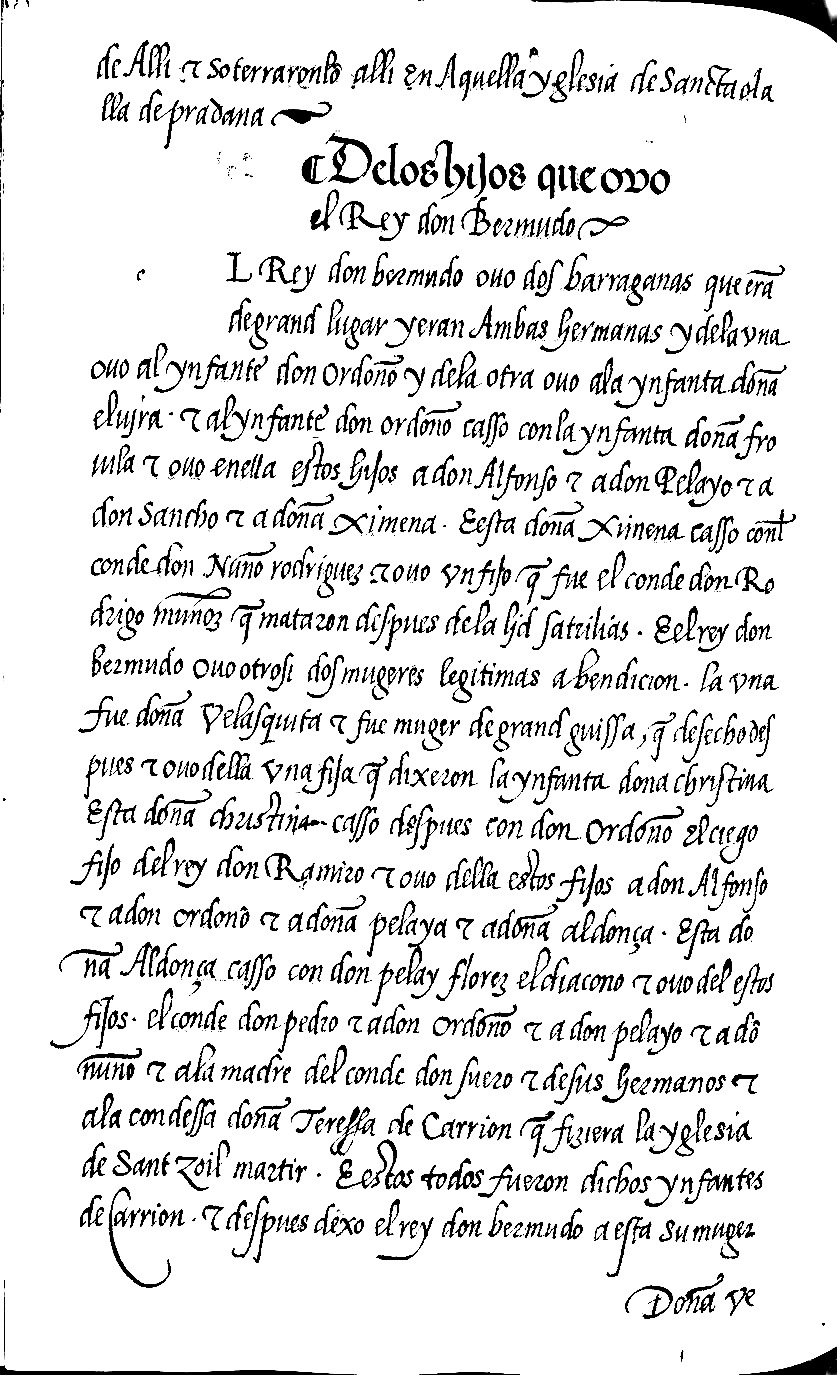 de Alli ⁊ soterraronlo alli en Aquella yglesia de Sanctaola
lla de pradana
¶ De los hijos que ovo
el Rey don Bermudo
e
L Rey don bermudo ouo dos barraganas que erā
de grand lugar y eran Ambas hermanas y dela vna
ouo al ynfante don ordoño y dela otra ouo ala ynfanta doña
eluira · ⁊ al ynfante don ordoño casso con la ynfanta doña fro
iula ⁊ ouo enella estos hijos a don Alfonso ⁊ a don Pelayo ⁊ a
don Sancho ⁊ a doña Ximena · E esta doña Ximena casso conl
conde don Nuño rodriguez ⁊ ouo vn fijo q̄ fue el conde don Ro
drigo muñoz q̄ mataron despues de la lid satrilias · E el rey don
bermudo ouo otrosi dos mugeres legitimas a bendicion · la vna
fue doña Velasquita ⁊ fue muger de grand guissa, q̄ desecho des
pues ⁊ ouo della vna fija q̄ dixeron la ynfanta dona christina
Esta doña christina casso despues con don Ordoño El ciego
fijo del rey don Ramiro ⁊ ouo della estos fijos a don Alfonso
⁊ a don ordono ⁊ a doña pelaya ⁊ a doña aldonça · Esta do
ña Aldonça casso con don pelay florez el diacono ⁊ ouo del estos
fijos · el conde don pedro ⁊ a don Ordoño ⁊ a don pelayo ⁊ a dō
nuño ⁊ ala madre del conde don suero ⁊ de sus hermanos ⁊
ala condessa doña Teressa de Carrion q̄ fiziera la yglesia
de Sant Zoil martir · E estos todos fueron dichos ynfantes
de Carrion · ⁊ despues dexo el rey don bermudo a esta su muger
Doña ve